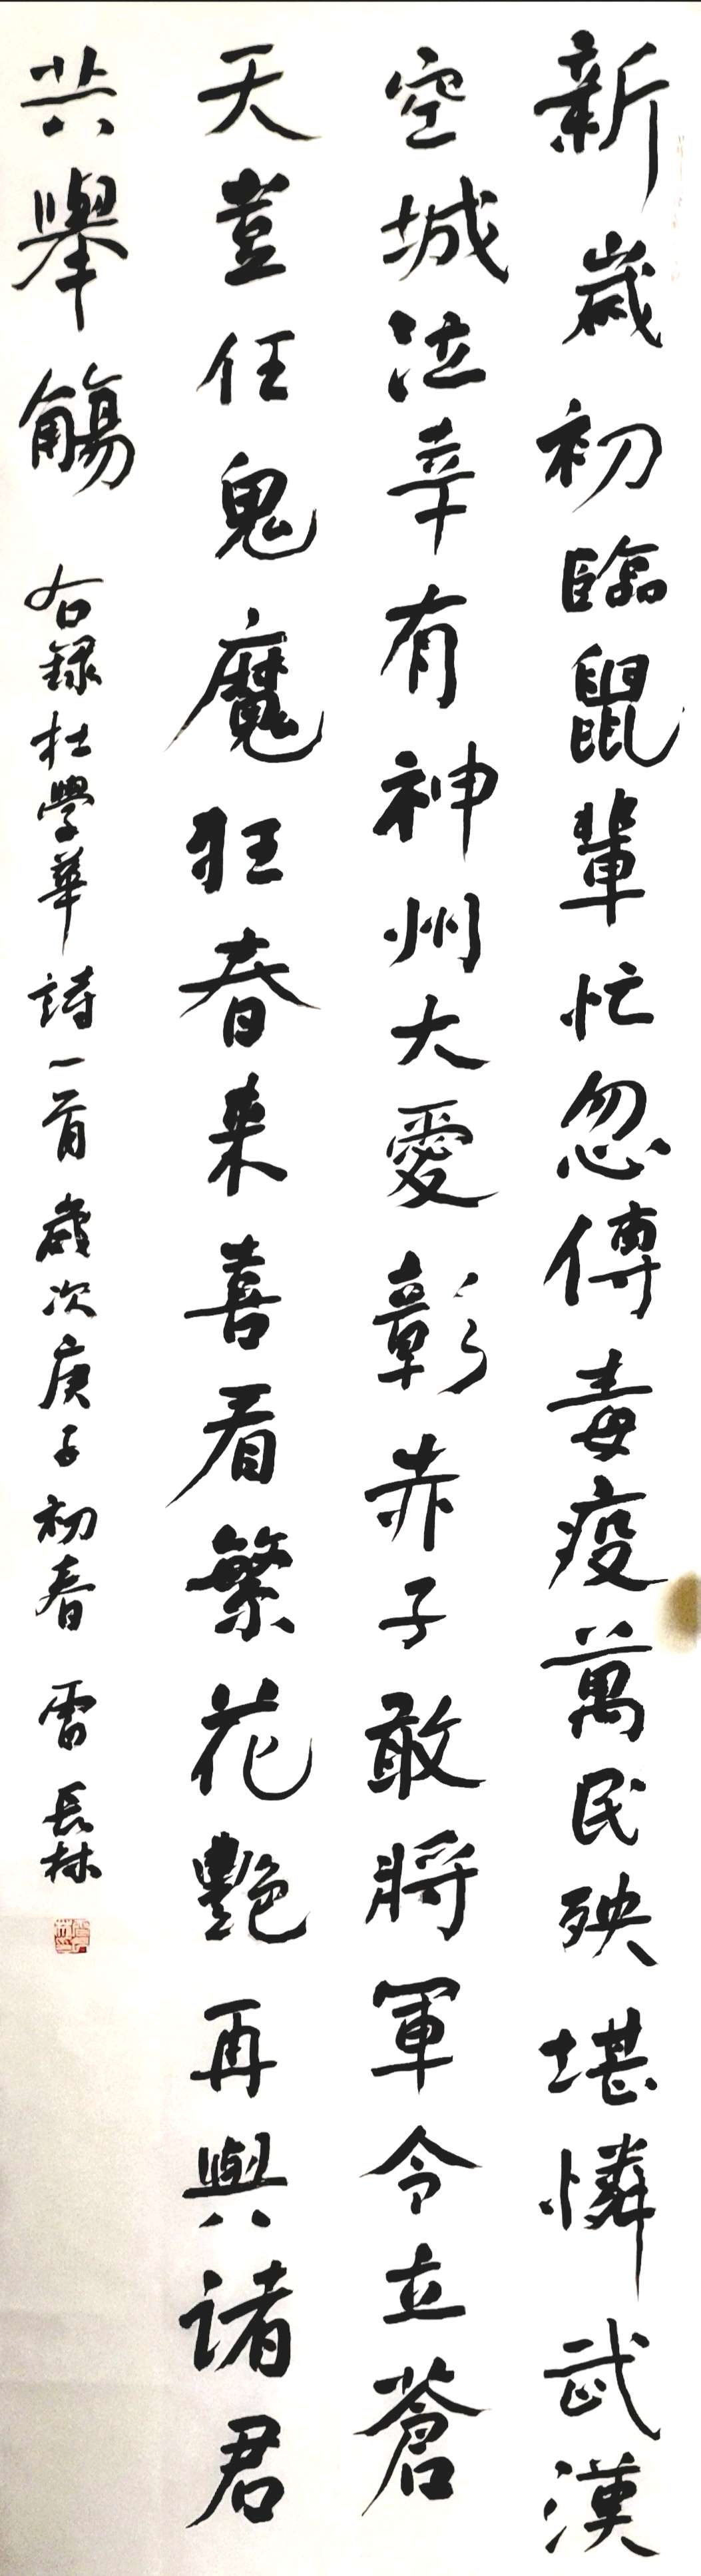 新歲初臨鼠輩忙忽傳毒疫萬民殃堪憐武漢
空城泣幸有神州大愛彰赤子敢將軍令立蒼
天豈任鬼魔狂春來喜看繁花艷再與諸君
共舉觴 右録杜學華詩一首歲次庚子初春 雷長林